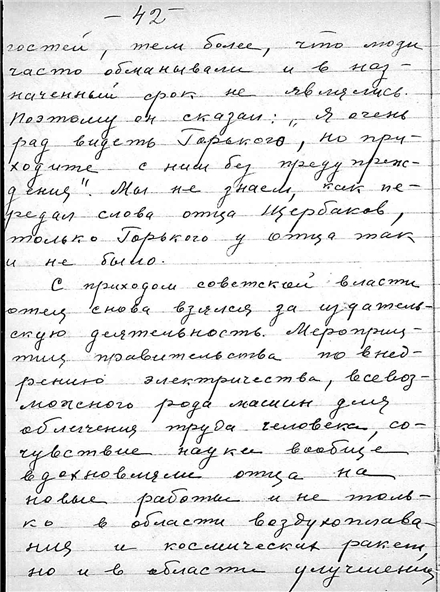 - 42 -
гостей, тем более, что люди
часто обманывали и в наз-
наченный срок не являлись.
Поэтому он сказал: „Я очень
рад видеть Горького, но при-
ходите с ним без предупреж-
дения". Мы не знаем, как пе-
редал слова отца Щербаков,
только Горького у отца так
и не было.
С приходом советской власти
отец снова взялся за издатель-
скую деятельность. Мероприя-
тия правительства по внед-
рению электричества, всевоз-
можного рода машин для
облегчения труда человека, со-
чувствие науке вообще
вдохновляли отца на
новые работы и не толь-
ко в области воздухоплава-
ния и космических ракет,
но и в области улучшения